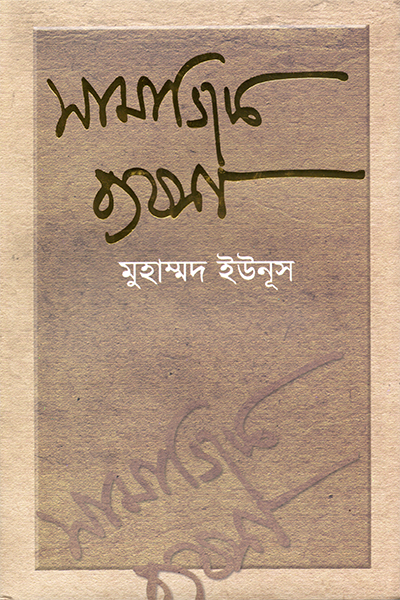 সামাজিক
ব্যবসা
মুহাম্মদ ইউনূস
সামাজিক
ব্যবসা